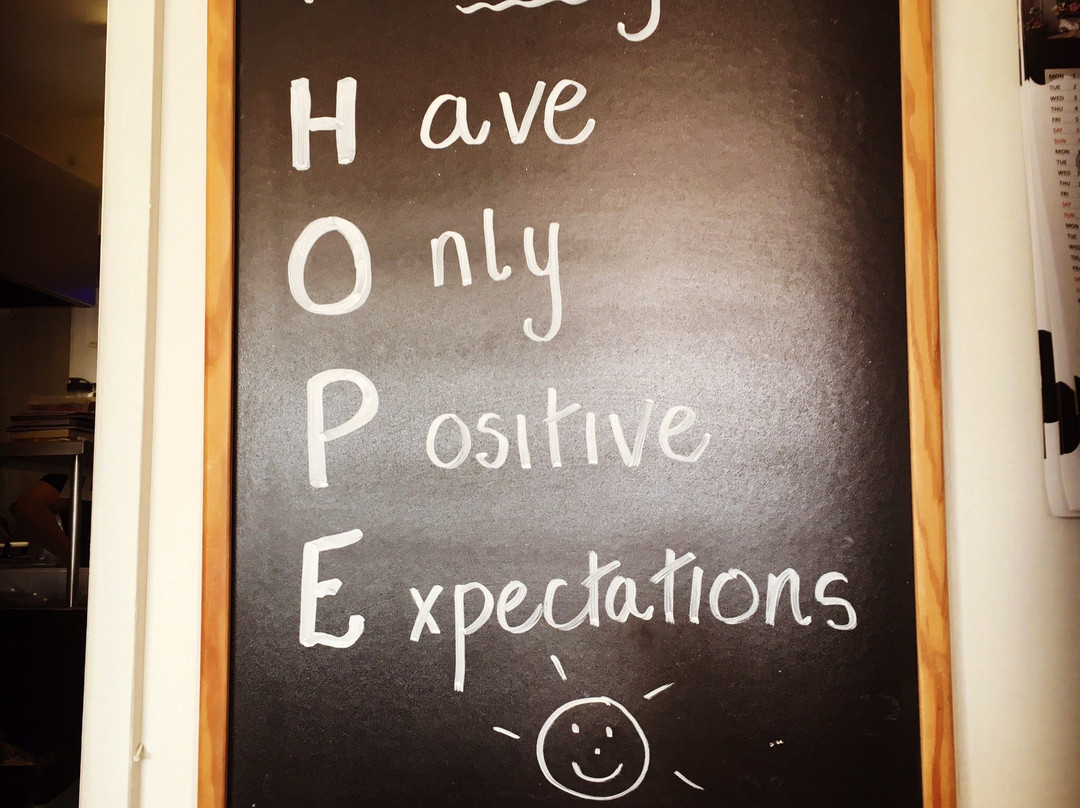 H ave
O nly
P ositive
E xpectations
MON 1
TUE 2
WED 3
THU 4
FRI 5
SAT 6
SUN 7
MON
TUE
WED
THU
FRI
SAT
SUN
MON
TUE
WED